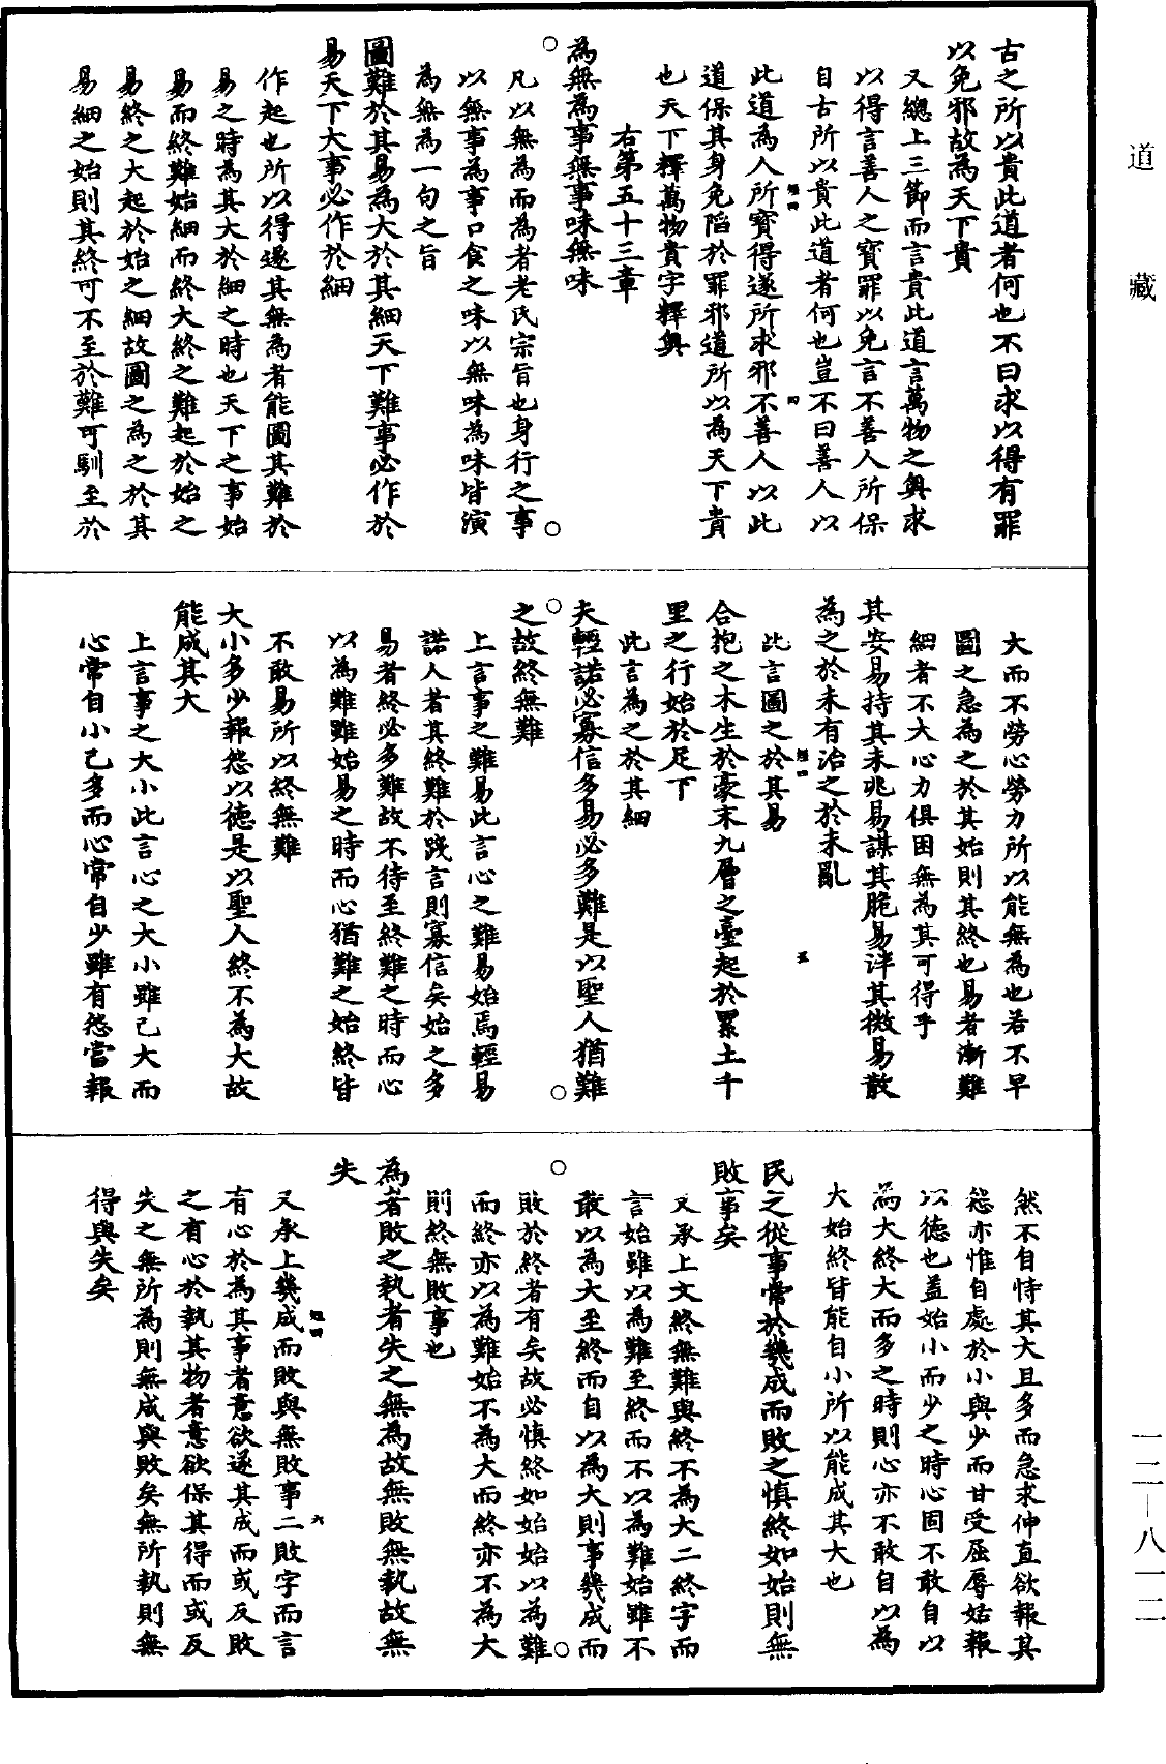 道藏
古之所以貴此道者何也不曰求以得有罪
以免邪故為天下貴
又總上三節而言貴此道言萬物之奧求
以得言善人之寶罪以免言不善人所保
自古所以貴此道者何也豈不曰善人以
此道為人所寶得遂所求邪不善人以此
道保其身免陷於罪邪道所以為天下貴
也天下釋萬物貴字釋奧
右第五十三章
為無為事無事味無味
凡以無為而為者老氏宗旨也身行之事
以無事為事口食之味以無味為味皆演
為無為一句之旨
圖難於其易為大於其細天下難事必作於
易天下大事必作於細
作起也所以得遂其無為者能圖其難於
易之時為其大於細之時也天下之事始
易而終難始細而終大終之難起於始之
易終之大起於始之細故圖之為之於其
易細之始則其終可不至於難可馴至於
大而不勞心勞力所以能無為也若不早
圖之急為之於其始則其終也易者漸難
細者不大心力俱困無為其可得乎
其安易持其未兆易謀其脆易泮其微易散
為之於未有治之於未亂
此言圖之於其易
合抱之木生於豪末九層之臺起於累土千
里之行始於足下
此言為之於其細
夫輕諾必寡信多易必多難是以聖人猶難
之故終無難
上言事之難易此言心之難易始焉輕易
諾人若其終難於踐言則寡信矣始之多
易者終必多難故不待至終難之時而心
以為難雖始易之時而心猶難之始終皆
不敢易所以終無難
大小多少報怨以德是以聖人終不為大故
能成其大
上言事之大小此言心之大小雖己大而
心常自小己多而心常自少雖有怨當報
然不自恃其大且多而急求伸直欲報其
怨亦惟自處於小與少而甘受屈辱姑報
以德也蓋始小而少之時心固不敢自以
為大終大而多之時則心亦不敢自以為
大始終皆能自小所以能成其大也
民之從事常於幾成而敗之慎終如始則無
敗事矣
又承上文終無難與終不為大二終字而
言始雖以為難至終而不以為難始雖不
敢以為大至終而自以為大則事幾成而
敗於終者有矣故必慎終如始始以為難
而終亦以為難始不為大而終亦不為大
則終無敗事也
為者敗之執者失之無為故無敗無執故無
失
又承上幾成而敗與無敗事二敗字而言
有心於為其事者意欲遂其成而或反敗
之有心於執其物者意欲保其得而或反
失之無所為則無成與敗矣無所執則無
得與失矣
一二—八一二